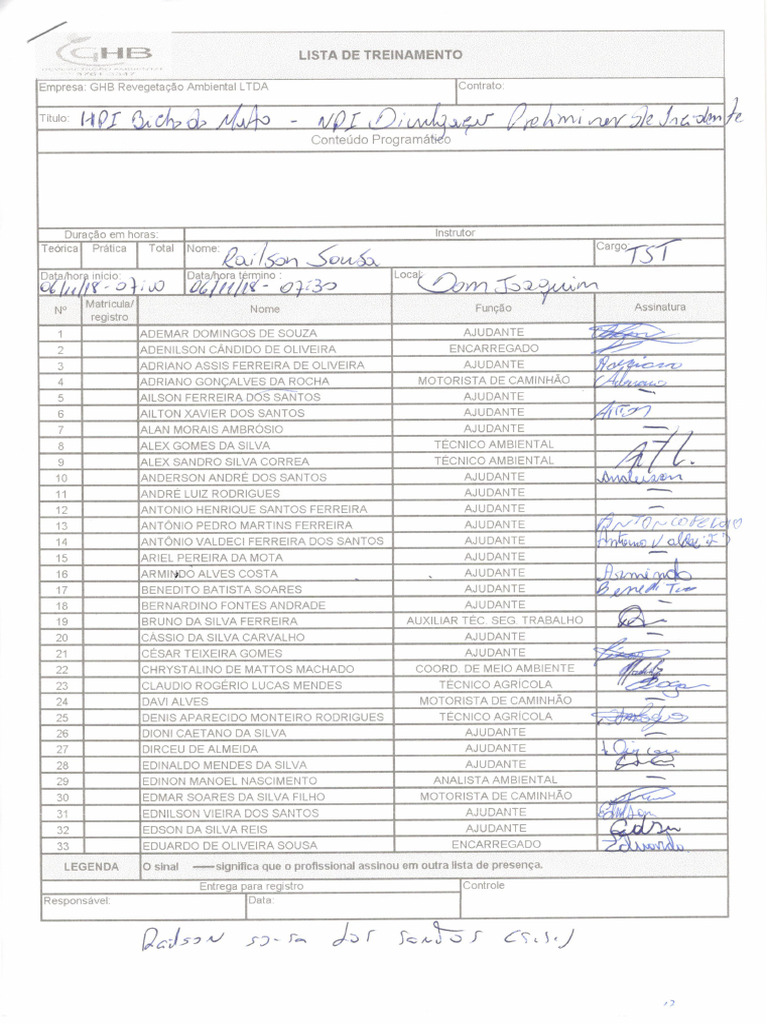 GHB
LISTA DE TREINAMENTO
Empresa: GHB Revegetação Ambiental LTDA
Contrato:
Título: HPI Bicho do Mato - NPI Divulgação Preliminar de Incidente
Conteúdo Programático
Duração em horas:
Instrutor
Teórica Prática Total Nome: Railson Sousa Cargo: TST
Data/hora início: 06/11/18-07:00 Data/hora término : 06/11/18-07:30 Local: Dom Joaquim
Nº Matricula/registro Nome Função Assinatura
1 ADEMAR DOMINGOS DE SOUZA AJUDANTE
2 ADENILSON CÂNDIDO DE OLIVEIRA ENCARREGADO
3 ADRIANO ASSIS FERREIRA DE OLIVEIRA AJUDANTE
4 ADRIANO GONÇALVES DA ROCHA MOTORISTA DE CAMINHÃO Adriano
5 AILSON FERREIRA DOS SANTOS AJUDANTE —
6 AILTON XAVIER DOS SANTOS AJUDANTE
7 ALAN MORAIS AMBRÓSIO AJUDANTE —
8 ALEX GOMES DA SILVA TÉCNICO AMBIENTAL
9 ALEX SANDRO SILVA CORREA TÉCNICO AMBIENTAL
10 ANDERSON ANDRÉ DOS SANTOS AJUDANTE Anderson
11 ANDRÉ LUIZ RODRIGUES AJUDANTE —
12 ANTONIO HENRIQUE SANTOS FERREIRA AJUDANTE —
13 ANTÔNIO PEDRO MARTINS FERREIRA AJUDANTE
14 ANTÔNIO VALDECI FERREIRA DOS SANTOS AJUDANTE
15 ARIEL PEREIRA DA MOTA AJUDANTE —
16 ARMINDO ALVES COSTA AJUDANTE Armindo
17 BENEDITO BATISTA SOARES AJUDANTE
18 BERNARDINO FONTES ANDRADE AJUDANTE —
19 BRUNO DA SILVA FERREIRA AUXILIAR TÉC. SEG. TRABALHO
20 CÁSSIO DA SILVA CARVALHO AJUDANTE —
21 CÉSAR TEIXEIRA GOMES AJUDANTE
22 CHRYSTALINO DE MATTOS MACHADO COORD. DE MEIO AMBIENTE
23 CLAUDIO ROGÉRIO LUCAS MENDES TÉCNICO AGRÍCOLA
24 DAVI ALVES MOTORISTA DE CAMINHÃO —
25 DENIS APARECIDO MONTEIRO RODRIGUES TÉCNICO AGRÍCOLA
26 DIONI CAETANO DA SILVA AJUDANTE —
27 DIRCEU DE ALMEIDA AJUDANTE
28 EDINALDO MENDES DA SILVA AJUDANTE
29 EDINON MANOEL NASCIMENTO ANALISTA AMBIENTAL —
30 EDMAR SOARES DA SILVA FILHO MOTORISTA DE CAMINHÃO
31 EDNILSON VIEIRA DOS SANTOS AJUDANTE
32 EDSON DA SILVA REIS AJUDANTE
33 EDUARDO DE OLIVEIRA SOUSA ENCARREGADO Eduardo
LEGENDA O sinal —— significa que o profissional assinou em outra lista de presença.
Entrega para registro
Controle
Responsável: Data:
Railson dos santos